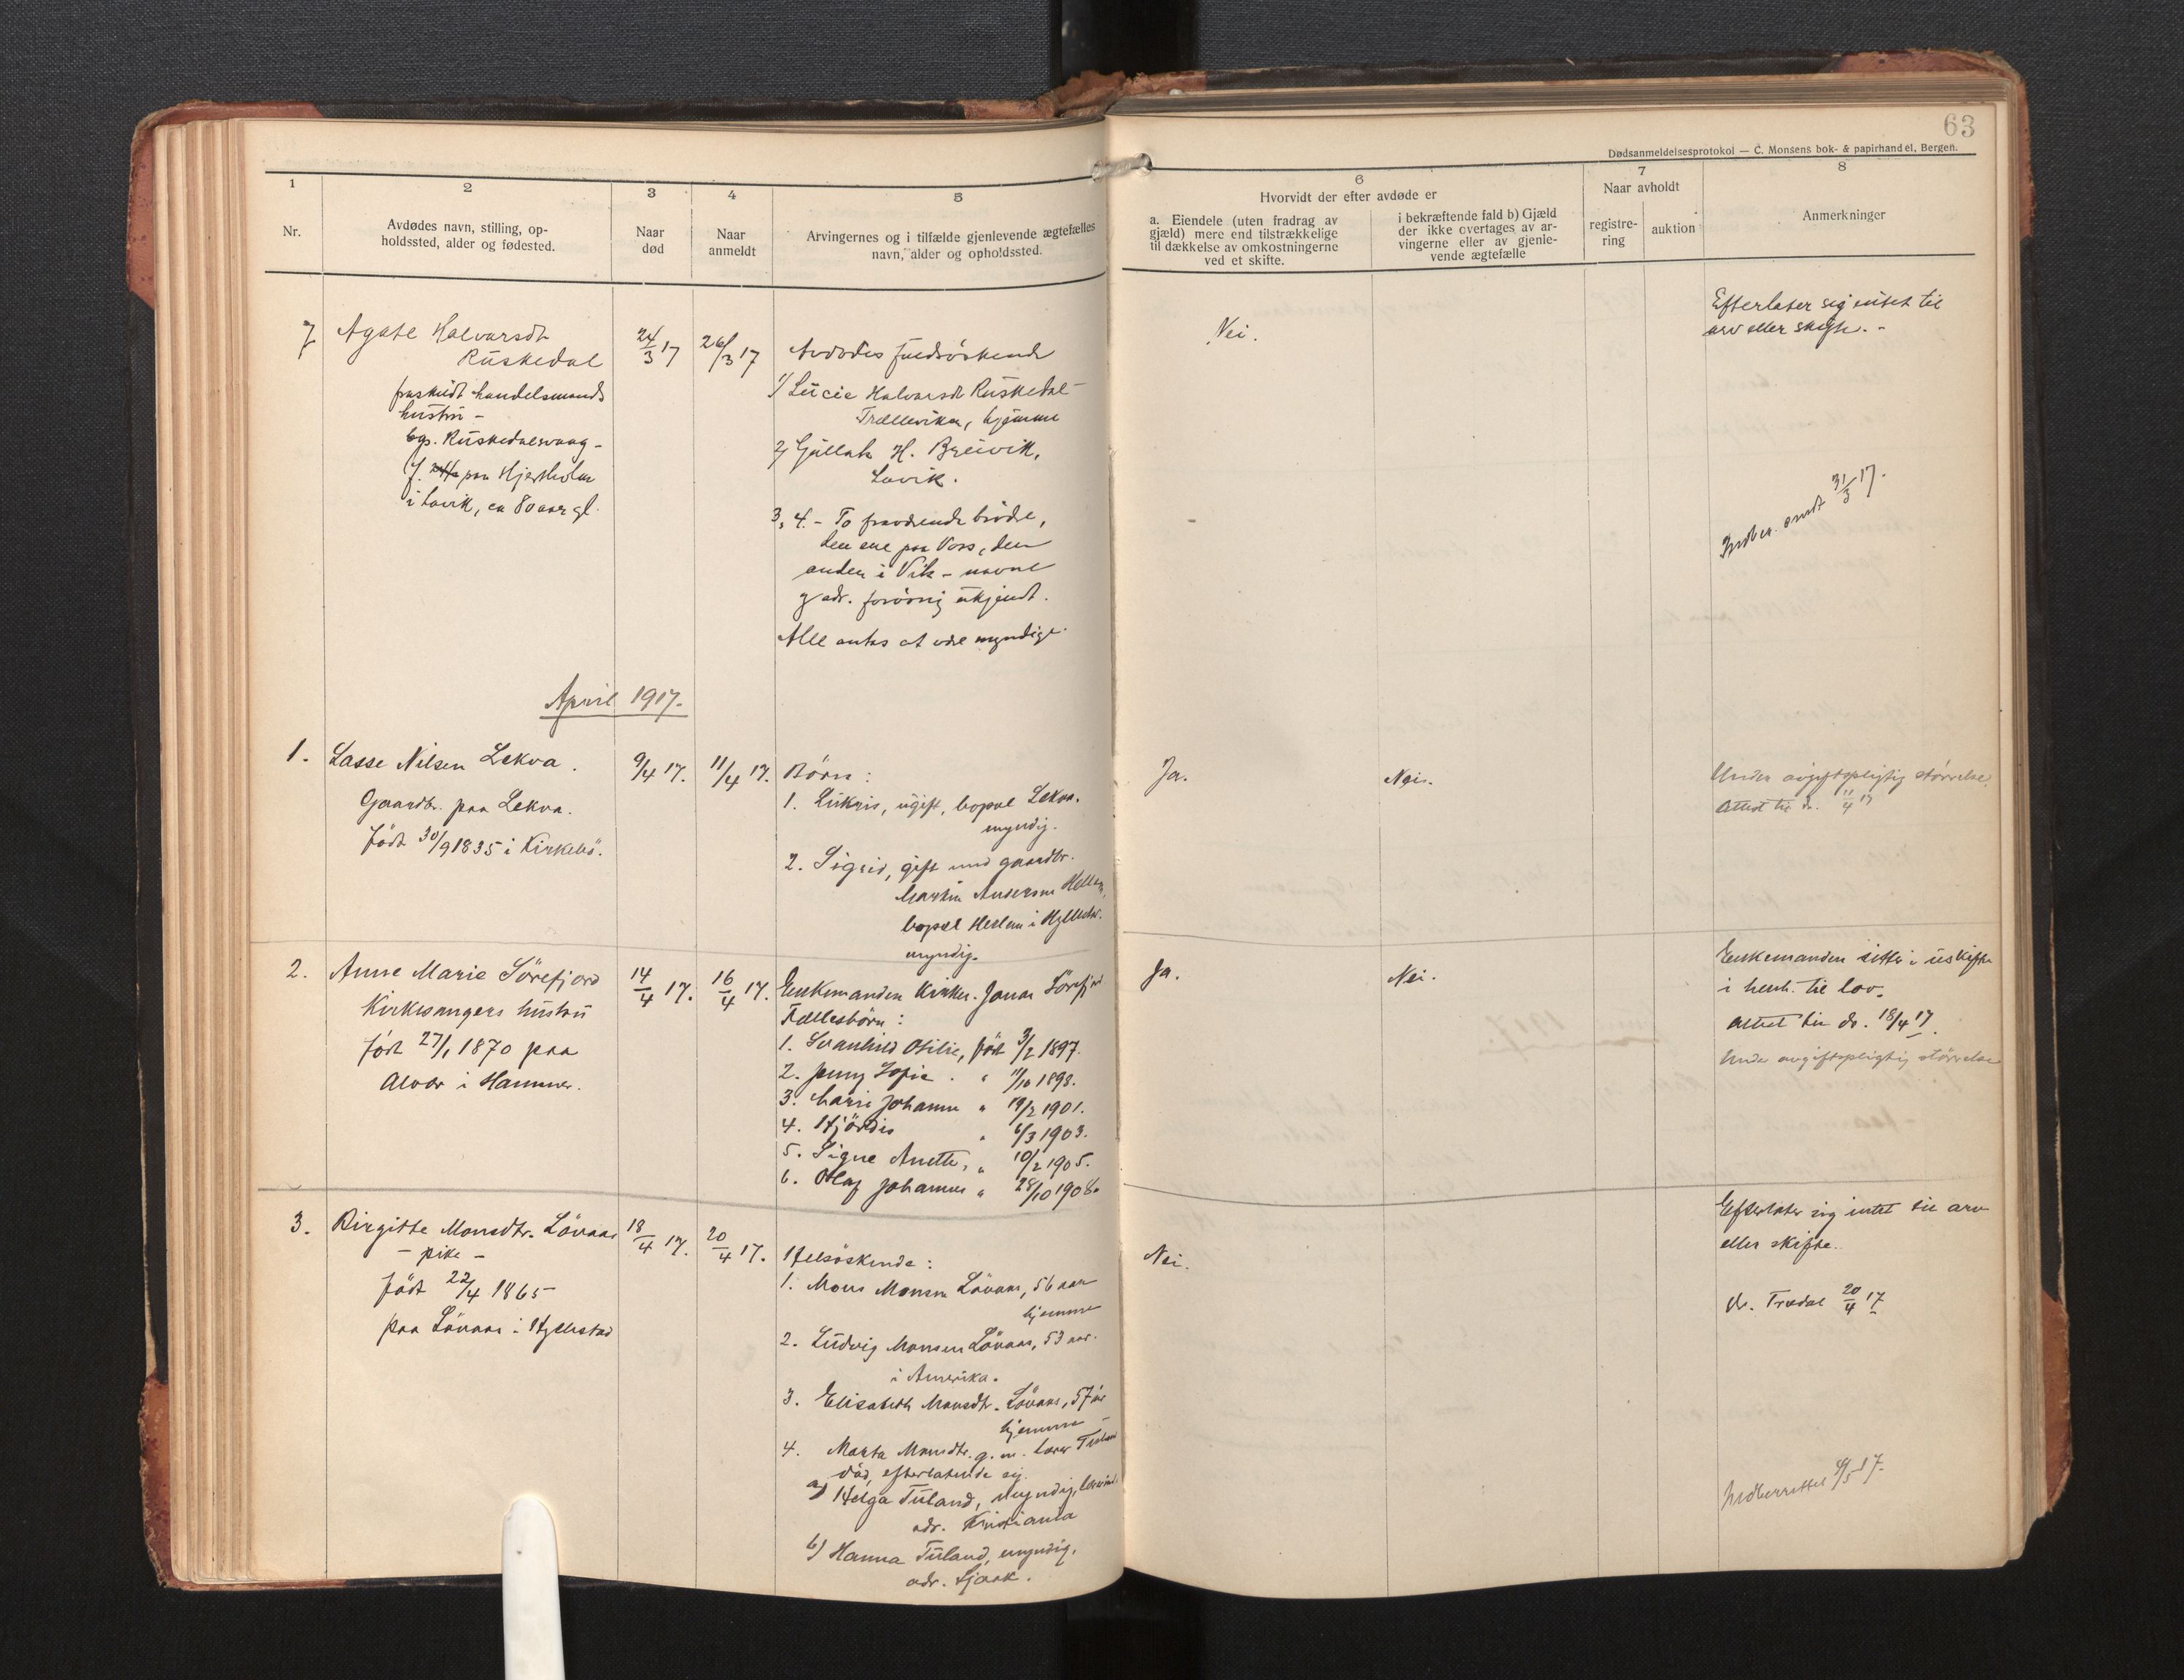 63
Dødsanmeldelsesprotokol — C. Monsens bok- & papirhandel, Bergen.
1
2
3
4
5
6
7
8
Nr.
Avdødes navn, stilling, op-
holdssted, alder og fødested.
Naar
død
Naar
anmeldt
Arvingernes og i tilfælde gjenlevende ægtefælles
navn, alder og opholdssted.
Hvorvidt der efter avdøde er
a. Eiendele (uten fradrag av
gjæld) mere end tilstrækkelige
til dækkelse av omkostningerne
ved et skifte.
i bekræftende fald b) Gjæld
der ikke overtages av ar-
vingerne eller av gjenle-
vende ægtefælle
Naar avholdt
registre-
ring
auktion
Anmerkninger
7
Agate Halvarsdt
Ruskedal
fraskildt handelsmands
hustru -
bop. Ruskedalsvaag -
f. paa Hjertholm
i Lavik, ca 80 aar gl.
24/3 17
26/3 17
Avdødes fuldsöskende
1/ Lucie Halvarsdt Ruskedal
Trællevika, hjemme
2/ Gullak H. Breivik,
Lavik.
3, 4. - To fraværende brødre,
den ene paa Voss, den
anden i Vik - navne
og adr. forøvrig ukjendt.
Alle antas at være myndige.
Nei.
Efterlater sig intet til
arv eller skifte. -
Indber. sendt 31/3 17.
April 1917.
1.
Lasse Nilsen Lekva.
Gaardbr. paa Lekva.
Født 30/9 1835 i Kirkebö.
9/4 17.
11/4 17.
Börn:
1. Lukris, ugift, bopæl Lekva.
myndig.
2. Sigrid, gift med gaardbr.
Martin Andersen
bopæl i
myndig.
Ja.
Nei.
Under avgiftspligtig størrelse.
Attest til do. 11/4 17
2.
Anne Marie Sörefjord
Kirkesangers hustru
født 27/1 1870 paa
Alvær i Hammer.
14/4 17.
16/4 17.
Enkemanden Kirkes. Jonas Sörefjord
Fællesbörn:
1. Svanhild Otilie, født 3/2 1897.
2. Jenny Sofie. " 11/10 1898.
3. Marie Johanne " 19/2 1901.
4. Hjördis " 6/3 1903.
5. Signe Anette, " 10/2 1905.
6. Olaf Johannes " 28/10 1908.
Ja.
Nei.
Enkemanden sitter i uskifte
i henh. til lov.
Attest til do. 18/4 17.
Under avgiftspligtig størrelse
3.
Birgitte Monsdtr. Lövaas
- pike -
født 22/4 1865
paa Lövaas i Hyllestad
18/4 17.
20/4 17.
Helsöskende:
1. Mons Monsen Lövaas, 56 aar
hjemme
2. Ludvig Monsen Lövaas, 53 aar.
i Amerika.
3. Elisabeth Monsdtr. Lövaas, 57 aar
hjemme
4. Marta Monsdtr. g. m. Lærer Tuland
död, efterlatende sig.
a) Helga Tuland, myndig,
adr. Kristiania
b) Hanna Tuland, myndig,
adr. Skjaak.
Nei.
Efterlater sig intet til arv
eller skifte.
20/4 17
Indberettet 9/5 17.